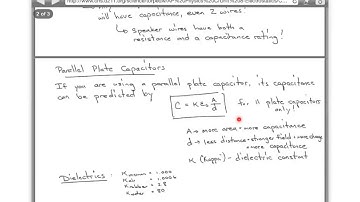 2 of 3
will have capacitance, even 2 wires
↳ speaker wires have both a
resistance and a capacitance rating!
Parallel Plate Capacitors
If you are using a parallel plate capacitor, its capacitance
can be predicted by
C = κε₀ A/d
for || plate capacitors
only!
A → more area = more capacitance
d → less distance = stronger field = more charge
= more capacitance
K (Kappa) - dielectric constant
Dielectrics:
K = 1.000
K air = 1.0006
K rubber = 2.8
K water = 80